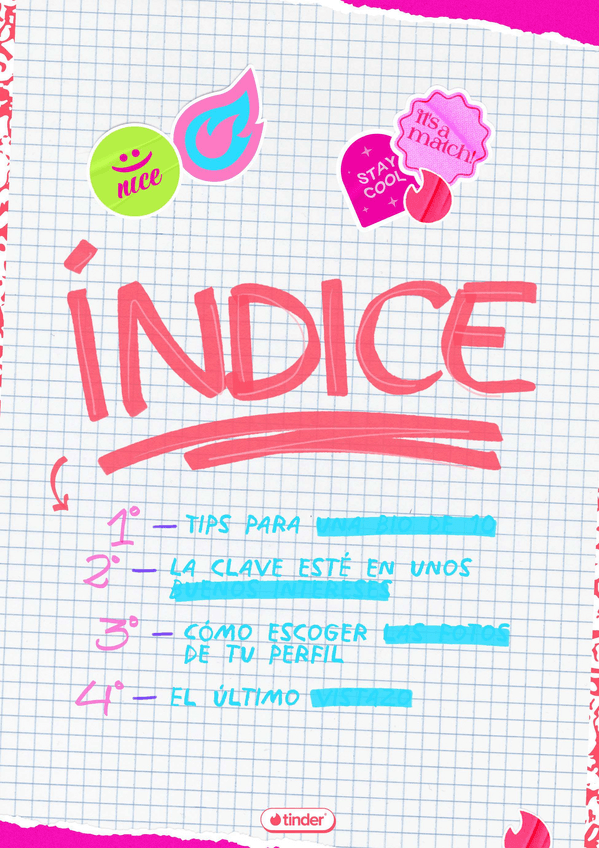 nice
STAY
COOL
it's a
match!
ÍNDICE
1º — TIPS PARA UNA BIO DE 10
2º — LA CLAVE ESTÉ EN UNOS
BUENOS INTERESES
3º — CÓMO ESCOGER LAS FOTOS
DE TU PERFIL
4º — EL ÚLTIMO VISTAZO
tinder